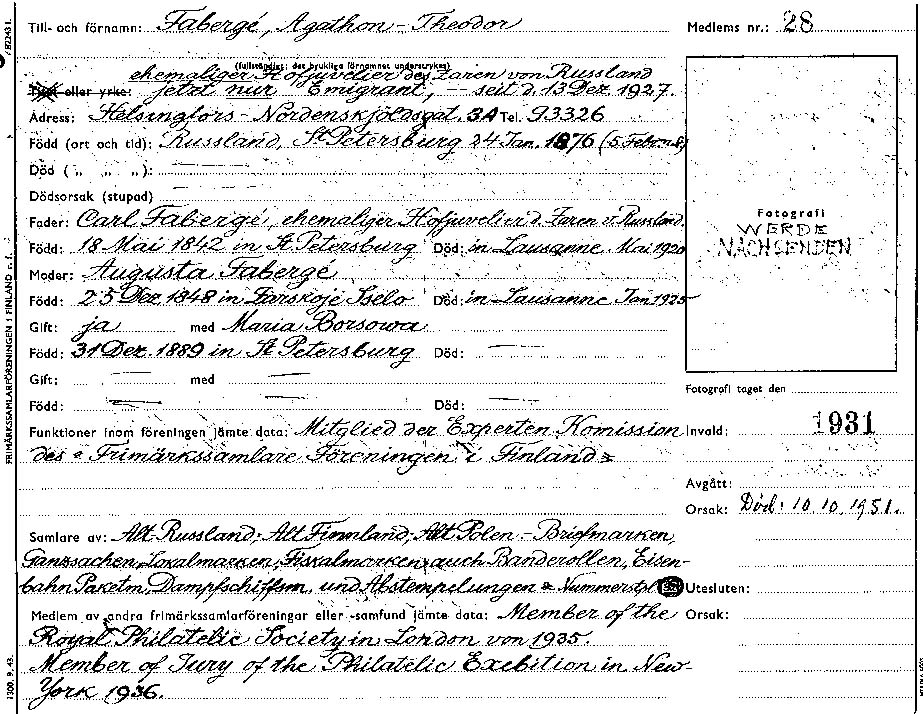 Till- och förnamn: Fabergé, Agathon-Theodor
Medlems nr.: 28
(fullständigt; det brukliga förnamnet understrykes)
ehemaliger Hofjuvelier des Zaren von Russland
Titel eller yrke: jetzt nur Emigrant, — seit d. 13 Dez. 1927.
Adress: Helsingfors - Nordenskjöldsgat. 3A Tel. 93326
Född (ort och tid): Russland, St Petersburg 24 Jan. 1876 (5 Febr. n.S)
Död ( „ „ „ ):
Dödsorsak (stupad)
Fader: Carl Fabergé, ehemaliger Hofjuvelier d. Zaren v. Russland
Född: 18 Mai 1842 in St Petersburg Död: in Lausanne Mai 1920
Moder: Augusta Fabergé
Född: 25 Dez. 1848 in Zarskoje Sselo Död: in Lausanne Jan 1925
Gift: ja med Maria Borsowa
Född: 31 Dez. 1889 in St Petersburg Död: —
Gift: — med —
Född: — Död: —
Funktioner inom föreningen jämte data: Mitglied der Experten Komission
des "Frimärkssamlare Föreningen i Finland"
Fotografi
WERDE
NACHSENDEN
Fotografi taget den
Invald: 1931
Avgått:
Orsak: Död: 10.10.1951.
Samlare av: Alt-Russland; Alt Finnland; Alt Polen - Briefmarken,
Ganzsachen, Lokalmarken, Fiskalmarken, auch Banderollen, Eisen-
bahn Paketm, Dampfschiffsm, und Abstempelungen & Nummerstpl
Utesluten:
Medlem av andra frimärkssamlarföreningar eller -samfund jämte data: Member of the
Orsak:
Royal Philatelic Society in London von 1935.
Member of Jury of the Philatelic Exebition in New-
York 1936.
FRIMÄRKSSAMLARFÖRENINGEN I FINLAND r. f.
1300. 9. 43.